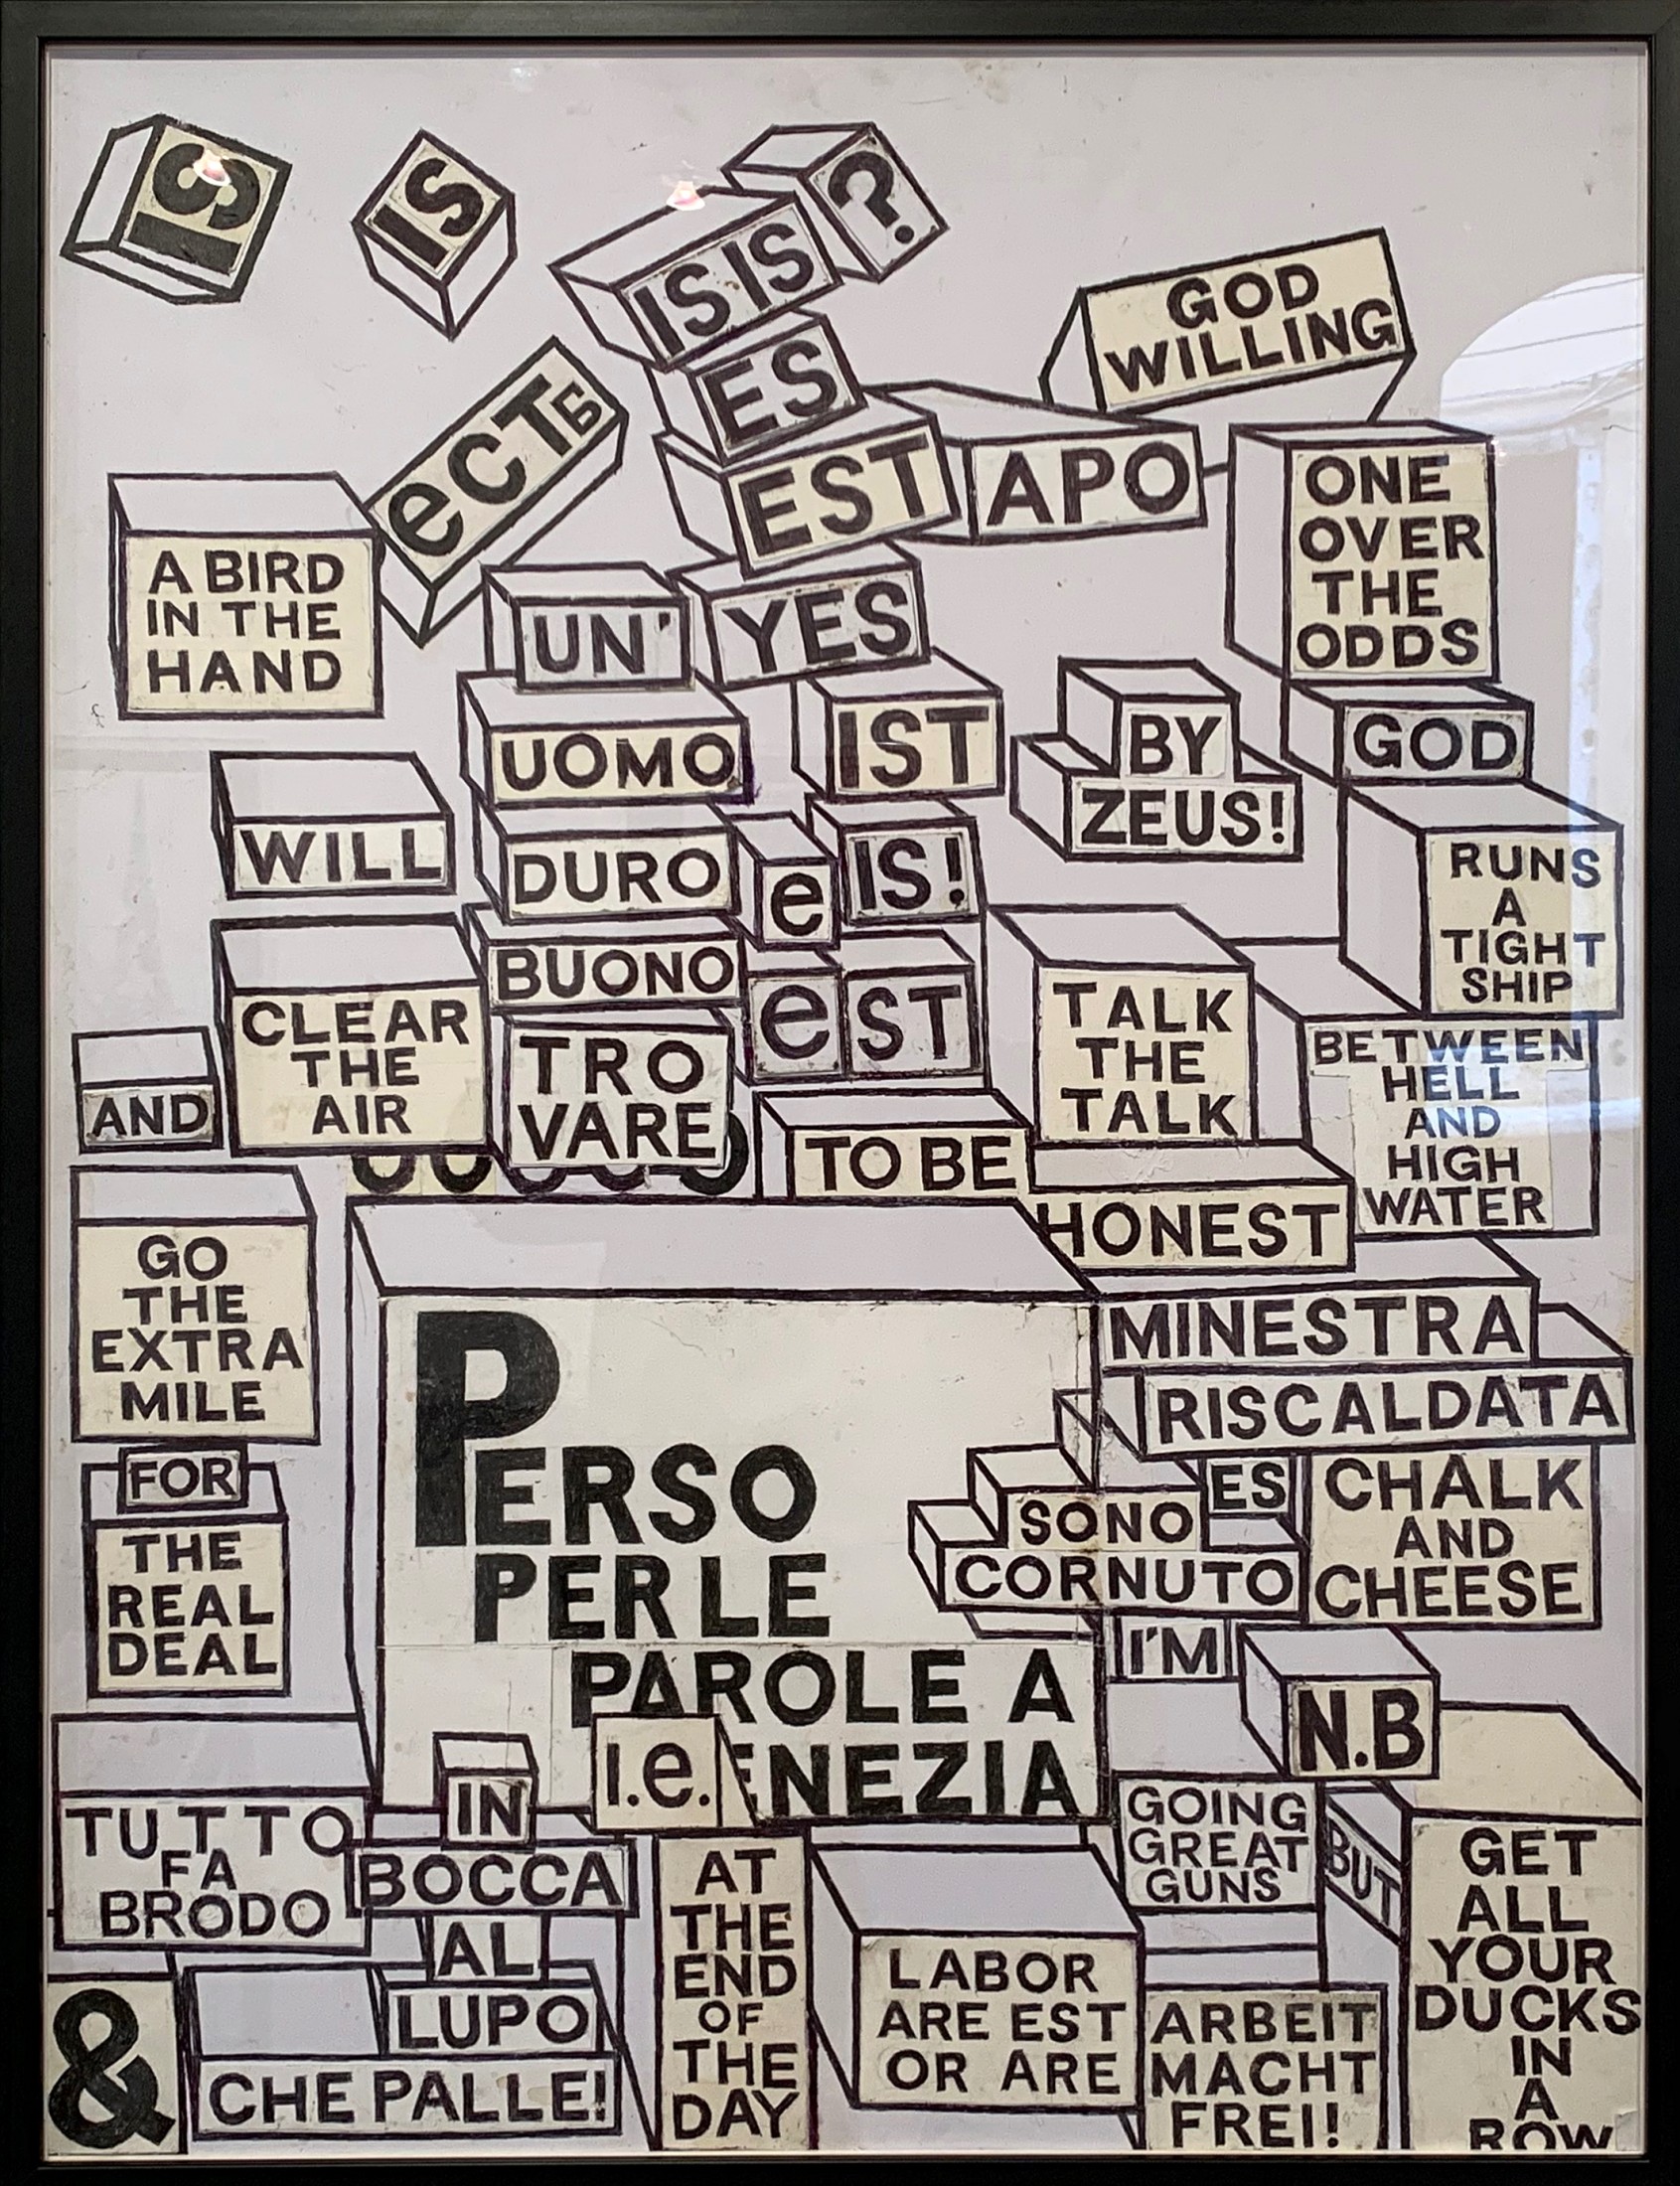 IS
IS
IS IS
?
GOD
WILLING
ES
eCTЬ
EST
APO
ONE
OVER
THE
ODDS
A BIRD
IN THE
HAND
UN'
YES
UOMO
IST
BY
ZEUS!
GOD
WILL
DURO
e
IS!
RUNS
A
TIGHT
SHIP
BUONO
CLEAR
THE
AIR
e
ST
TALK
THE
TALK
BETWEEN
HELL
AND
HIGH
WATER
AND
TRO
VARE
TO BE
HONEST
GO
THE
EXTRA
MILE
MINESTRA
RISCALDATA
PERSO
PER LE
PAROLE A
ENEZIA
FOR
THE
REAL
DEAL
ES
SONO
CORNUTO
CHALK
AND
CHEESE
I'M
N.B
i.e.
TUTTO
FA
BRODO
IN
BOCCA
AL
LUPO
GOING
GREAT
GUNS
BUT
GET
ALL
YOUR
DUCKS
IN
A
ROW
AT
THE
END
OF
THE
DAY
LABOR
ARE EST
OR ARE
ARBEIT
MACHT
FREI!
&
CHE PALLE!